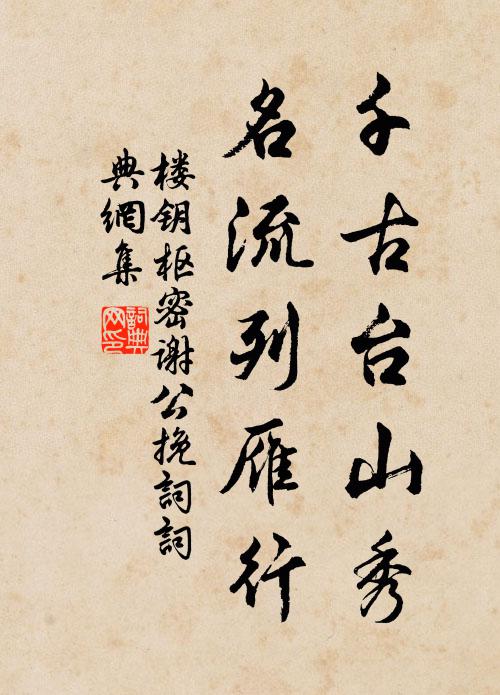 千古台山秀
名流列雁行
楼钥枢密谢公挽詞詞
典網集
詞典网印